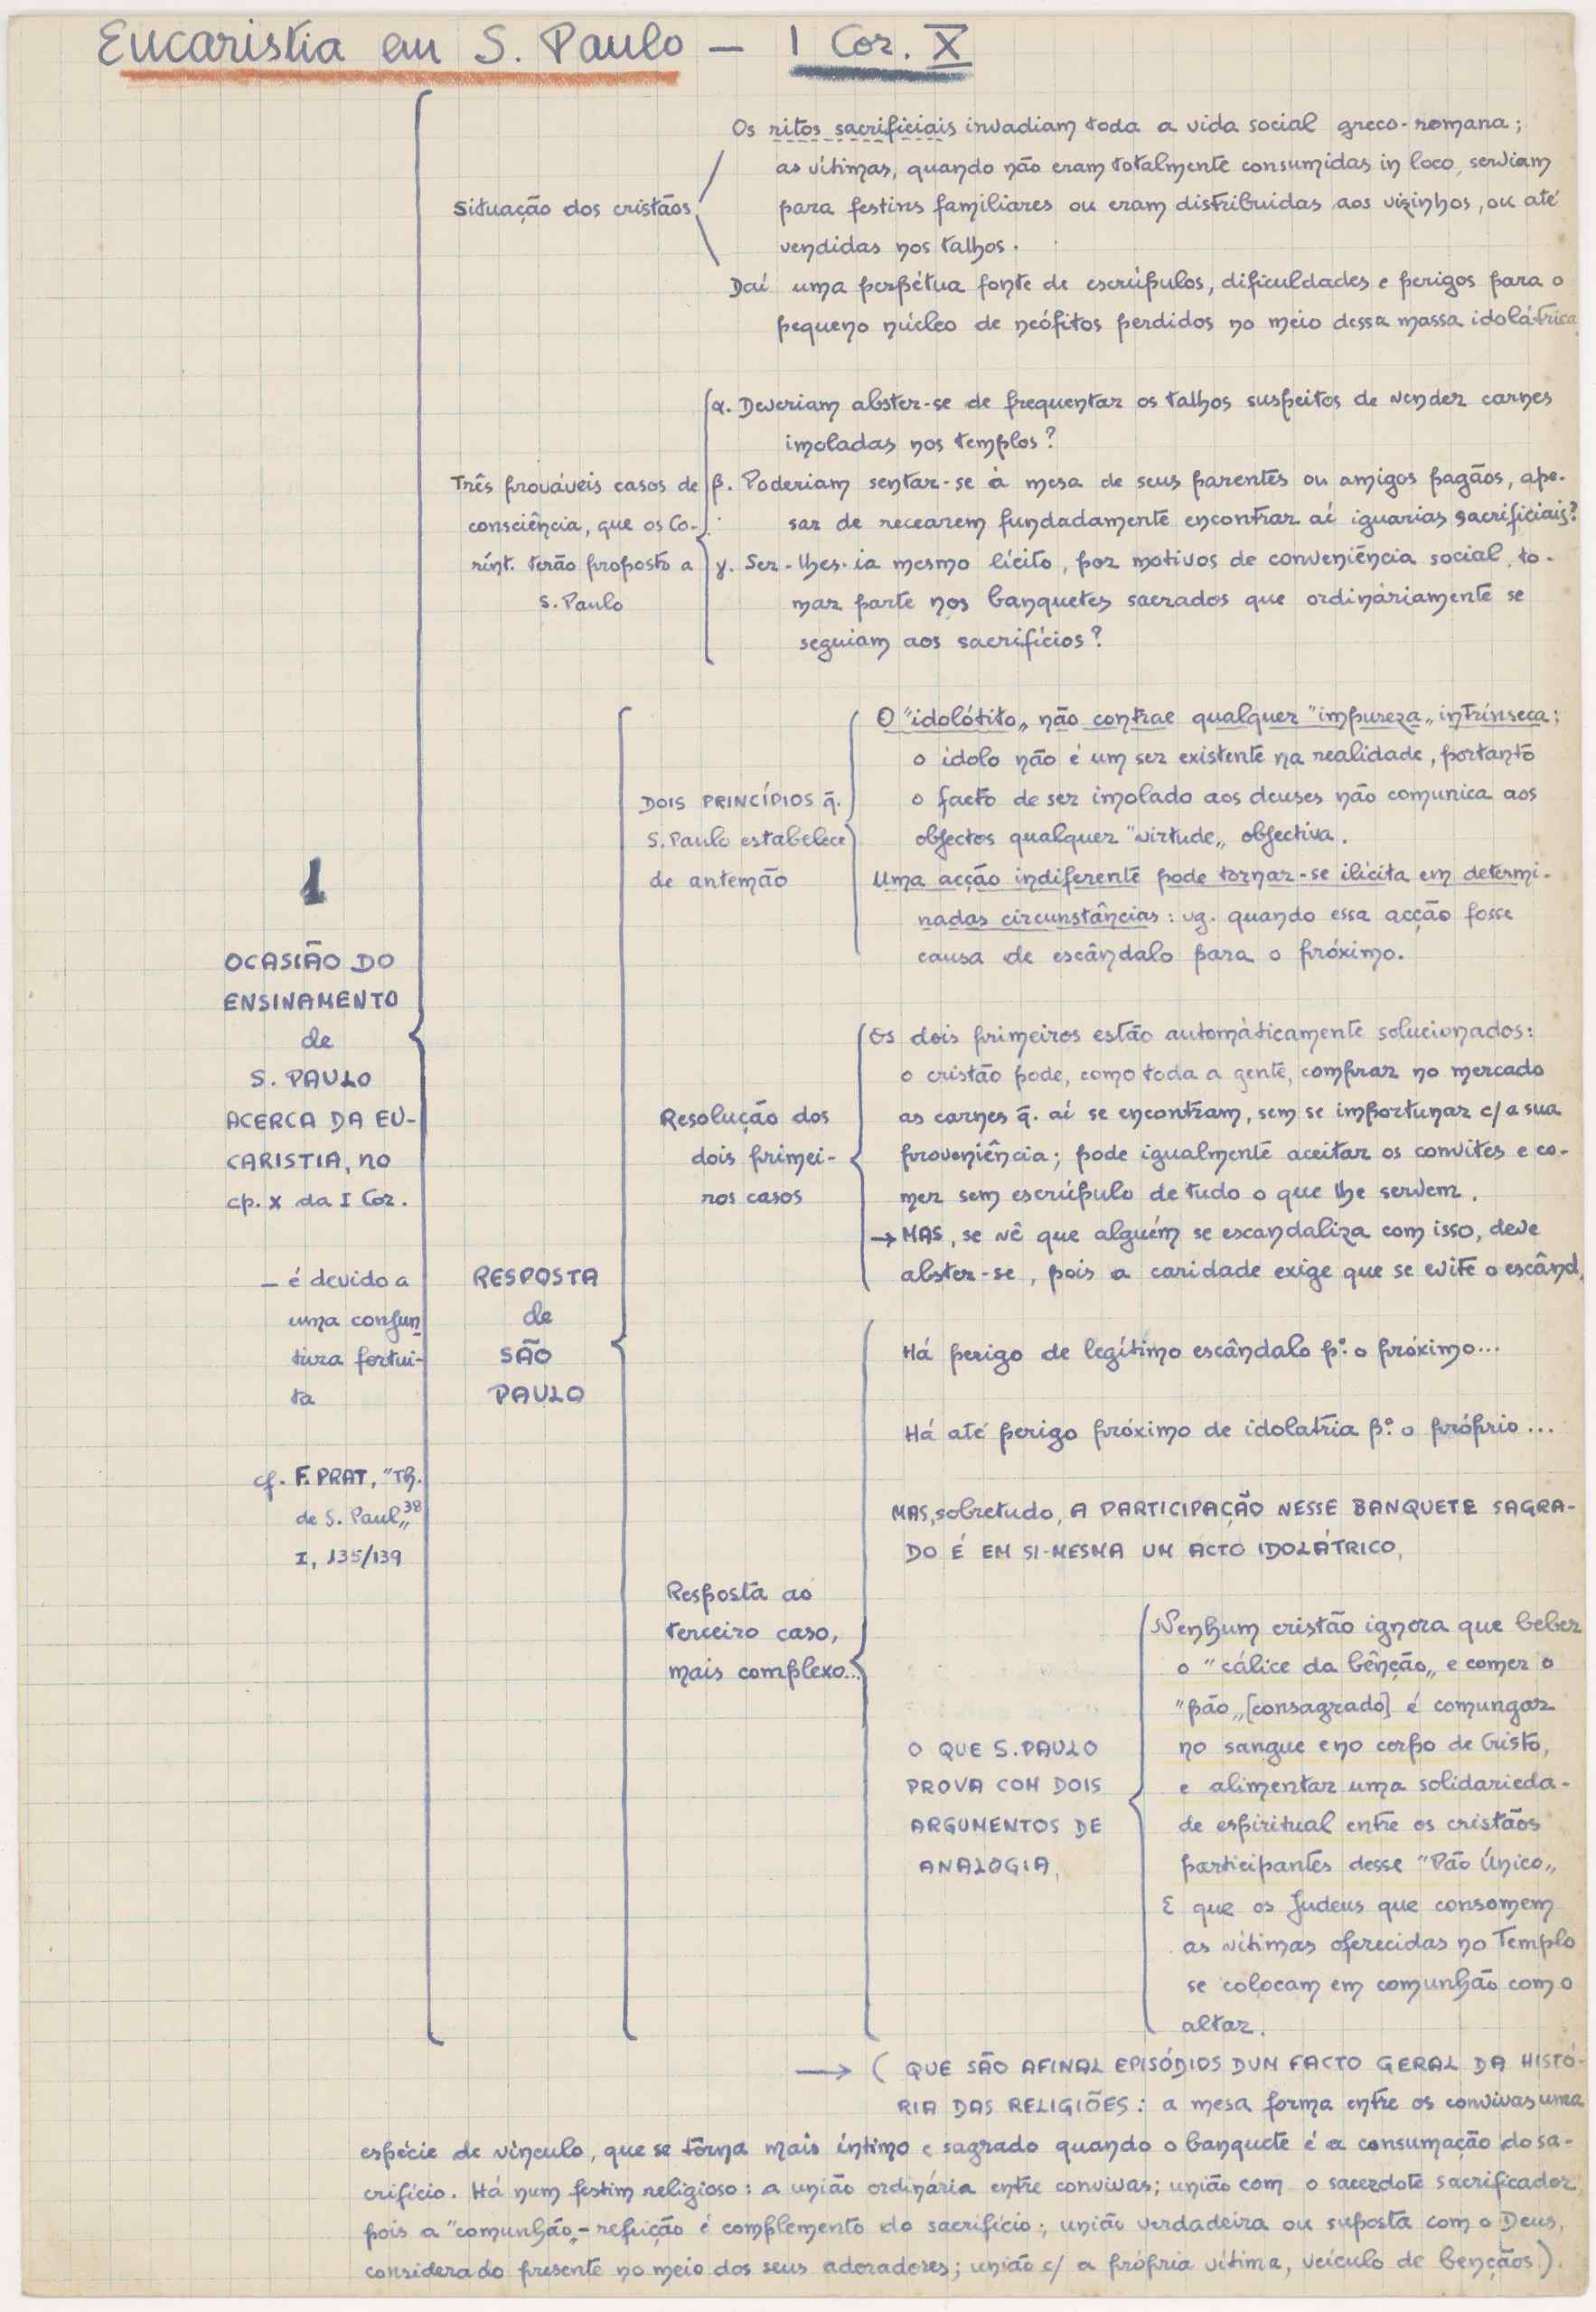 Eucaristia em S. Paulo — I Cor. X
1
OCASIÃO DO
ENSINAMENTO
de
S. PAULO
ACERCA DA EU-
CARISTIA, no
cp. X da I Cor.
— é devido a
uma conjun
tura fortui-
ta
cf. F. PRAT, "Th.
de S. Paul„ 38
I, 135/139
Situação dos cristãos
Os ritos sacrificiais invadiam toda a vida social greco-romana;
as vítimas, quando não eram totalmente consumidas in loco, serviam
para festins familiares ou eram distribuidas aos vizinhos, ou até
vendidas nos talhos.
Daí uma perpétua fonte de escrúpulos, dificuldades e perigos para o
pequeno núcleo de neófitos perdidos no meio dessa massa idolátrica.
Três prováveis casos de
consciência, que os Co-
rínt. terão proposto a
S. Paulo
α. Deveriam abster-se de frequentar os talhos suspeitos de vender carnes
imoladas nos templos?
β. Poderiam sentar-se à mesa de seus parentes ou amigos pagãos, ape-
sar de recearem fundadamente encontrar aí iguarias sacrificiais?
γ. Ser-lhes-ia mesmo lícito, por motivos de conveniência social, to-
mar parte nos banquetes sacrados que ordinàriamente se
seguiam aos sacrifícios?
RESPOSTA
de
SÃO
PAULO
DOIS PRINCÍPIOS q̃.
S. Paulo estabelece
de antemão
O "idolótito„ não contrae qualquer "impureza„ intrínseca;
o ídolo não é um ser existente na realidade, portanto
o facto de ser imolado aos deuses não comunica aos
objectos qualquer "virtude„ objectiva.
Uma acção indiferente pode tornar-se ilícita em determi-
nadas circunstâncias: vg. quando essa acção fosse
causa de escândalo para o próximo.
Resolução dos
dois primei-
ros casos
Os dois primeiros estão automàticamente solucionados:
o cristão pode, como toda a gente, comprar no mercado
as carnes q̃. aí se encontram, sem se importunar c/ a sua
proveniência; pode igualmente aceitar os convites e co-
mer sem escrúpulo de tudo o que lhe servem.
→ MAS, se vê que alguém se escandaliza com isso, deve
abster-se, pois a caridade exige que se evite o escând.
Resposta ao
terceiro caso,
mais complexo...
Há perigo de legítimo escândalo p.º o próximo...
Há até perigo próximo de idolatria p.º o próprio...
MAS, sobretudo, A PARTICIPAÇÃO NESSE BANQUETE SAGRA-
DO É EM SI-MESMA UM ACTO IDOLÁTRICO,
O QUE S. PAULO
PROVA COM DOIS
ARGUMENTOS DE
ANALOGIA,
Nenhum cristão ignora que beber
o "cálice da bênção„ e comer o
"pão„ [consagrado] é comungar
no sangue e no corpo de Cristo,
e alimentar uma solidarieda-
de espiritual entre os cristãos
participantes desse "Pão Único„
E que os Judeus que consomem
as vítimas oferecidas no Templo
se colocam em comunhão com o
altar.
→ ( QUE SÃO AFINAL EPISÓDIOS DUM FACTO GERAL DA HISTÓ-
RIA DAS RELIGIÕES: a mesa forma entre os convivas uma
espécie de vínculo, que se tôrna mais íntimo e sagrado quando o banquete é a consumação do sa-
crifício. Há num festim religioso: a união ordinária entre convivas; união com o sacerdote sacrificador,
pois a "comunhão„-refeição é complemento do sacrifício; união verdadeira ou suposta com o Deus,
considerado presente no meio dos seus adoradores; união c/ a própria vítima, veículo de benções).